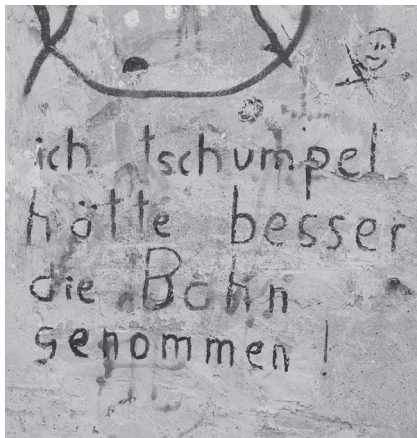 ich tschumpel
hätte besser
die Bahn
genommen!